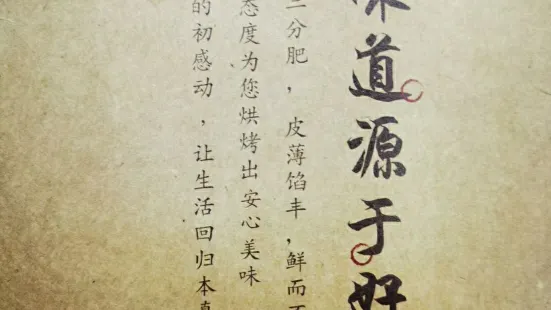 味道源于好
二分肥，皮薄馅丰，鲜而不
态度为您烘烤出安心美味
的初感动，让生活回归本真